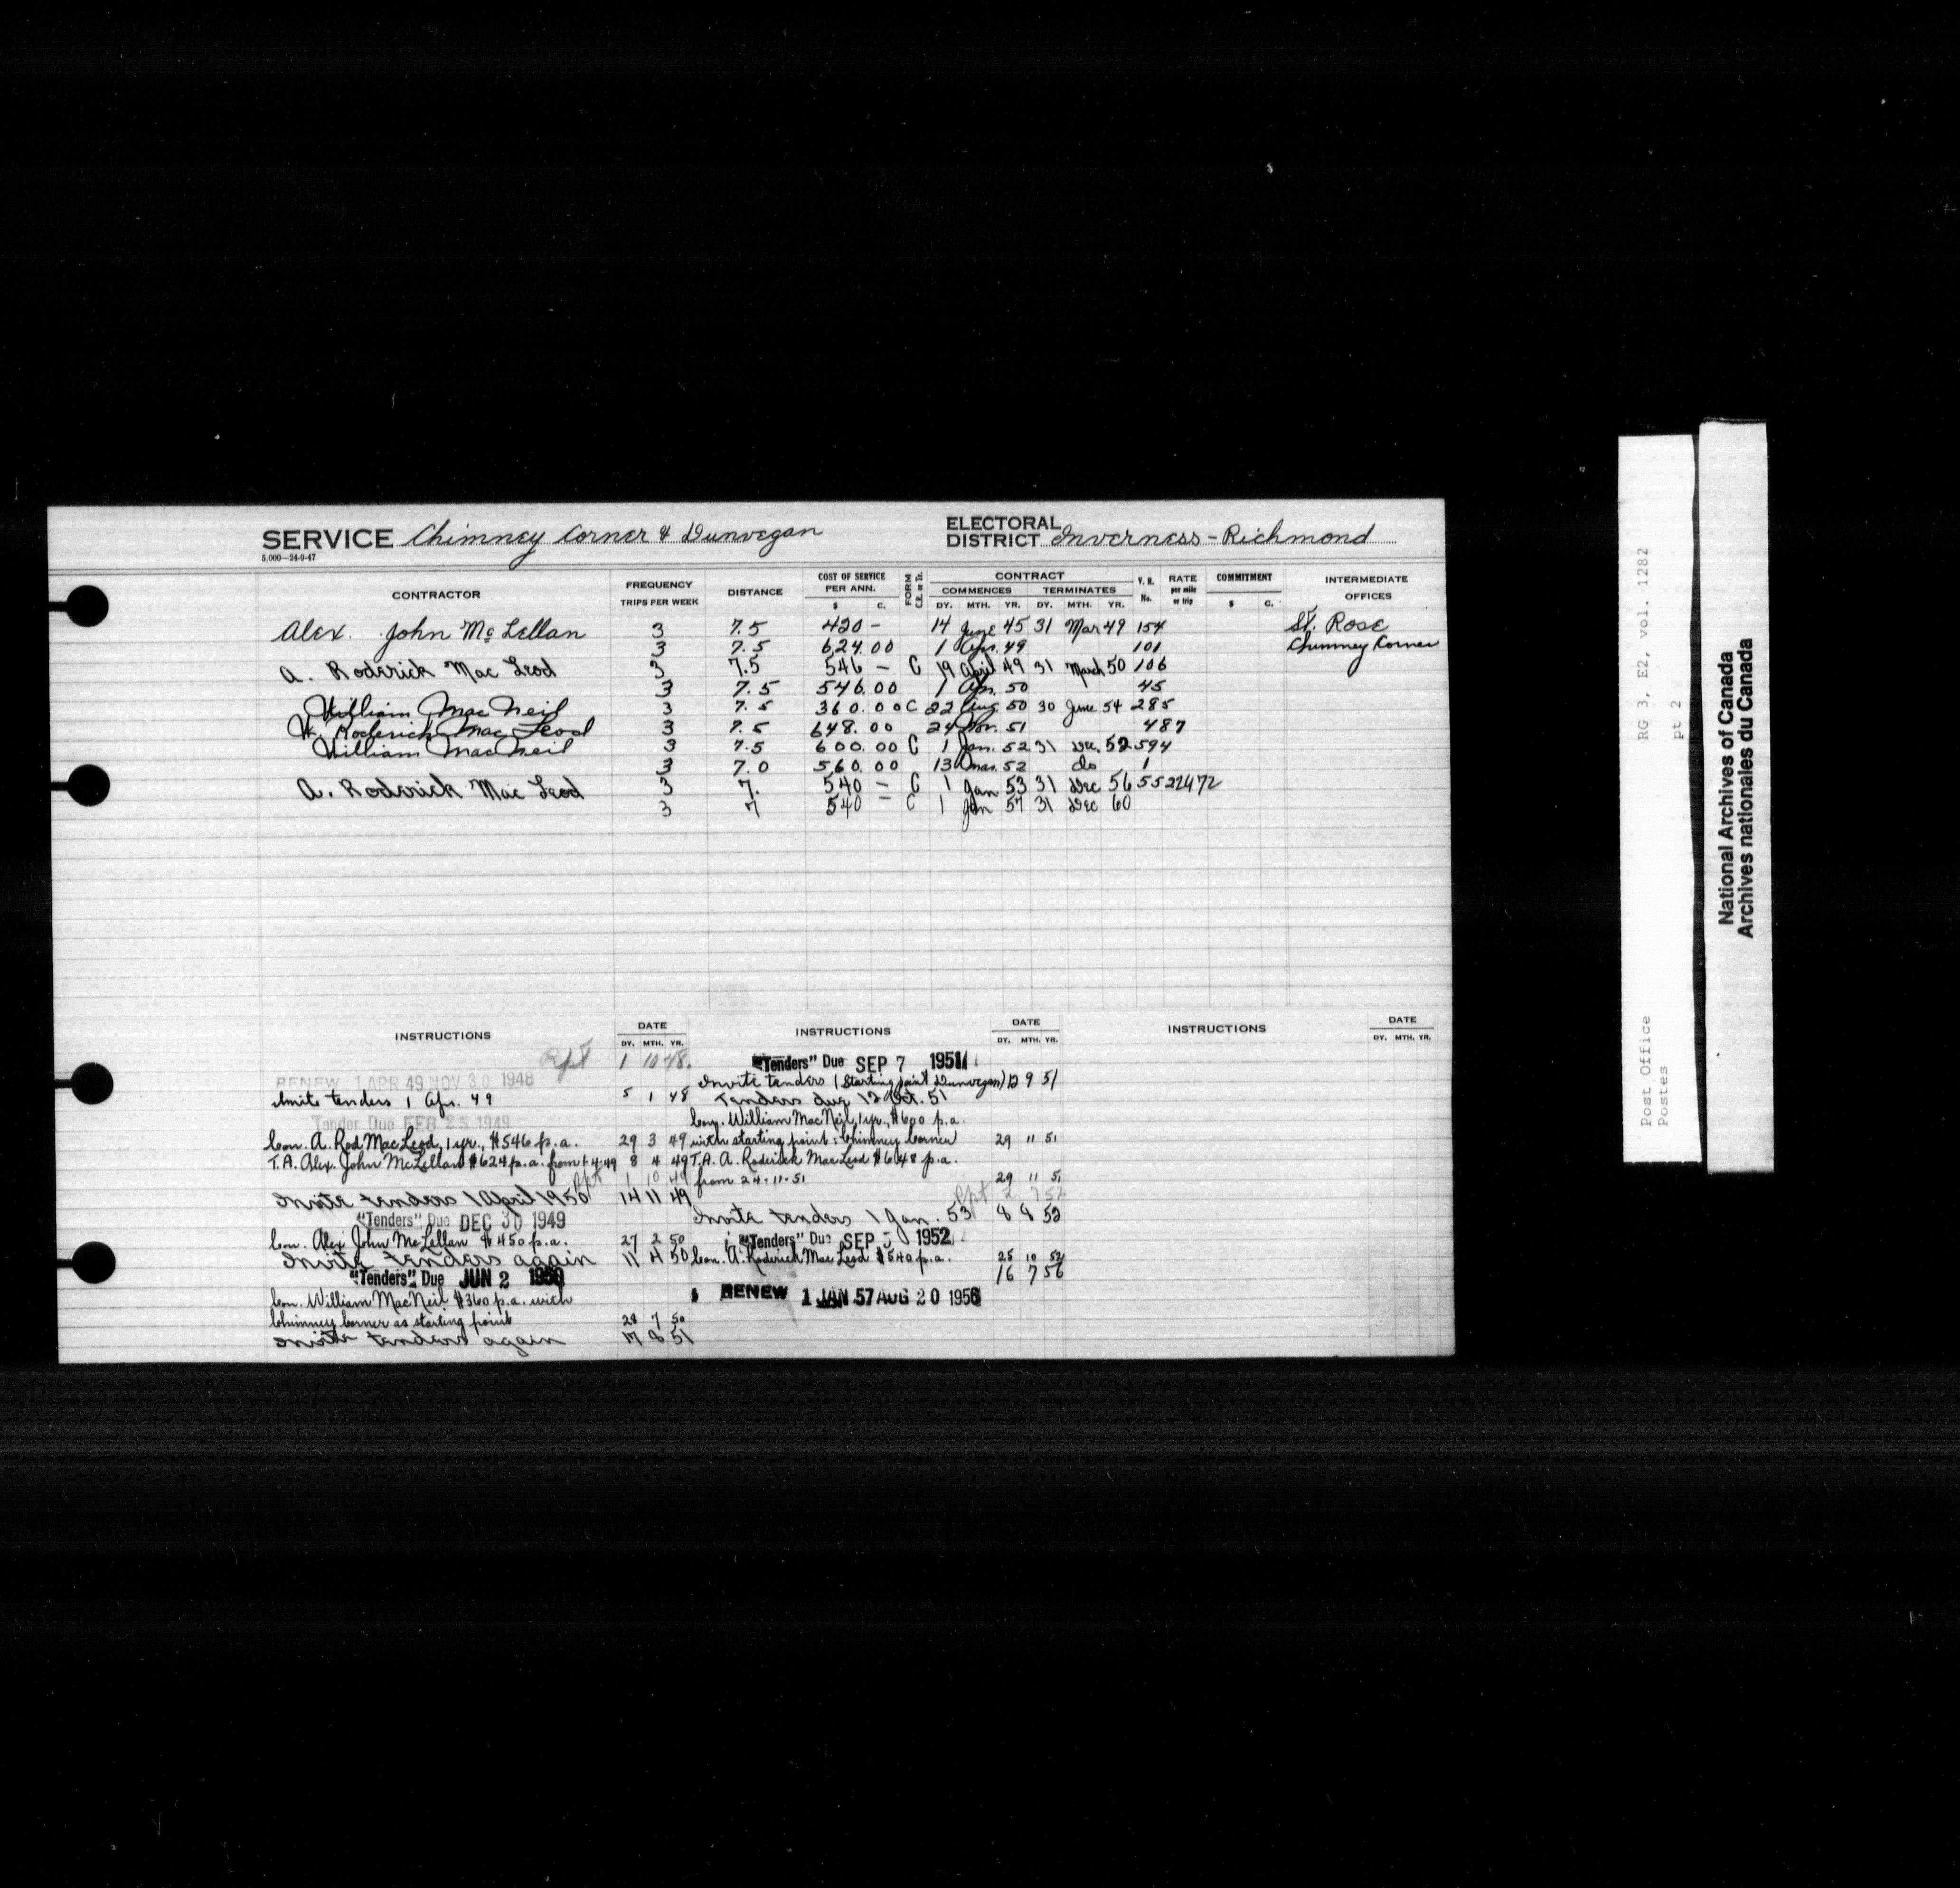 SERVICE Chimney Corner & Dunvegan ELECTORAL DISTRICT Inverness - Richmond
5,000—24-9-47
CONTRACTOR FREQUENCY TRIPS PER WEEK DISTANCE COST OF SERVICE PER ANN. $ C. FORM C.R. or Tr. CONTRACT COMMENCES DY. MTH. YR. TERMINATES DY. MTH. YR. V.R. No. RATE per mile or trip COMMITMENT $ C. INTERMEDIATE OFFICES
Alex. John McLellan 3 7.5 420 - 14 June 45 31 Mar 49 154 St. Rose
3 7.5 624.00 1 Apr. 49 101 Chimney Corner
A. Roderick MacLeod 3 7.5 546 - C 19 April 49 31 March 50 106
3 7.5 546.00 1 Apr. 50 45
William MacNeil 3 7.5 360.00 C 22 Aug. 50 30 June 54 285
Roderick MacLeod 3 7.5 648.00 24 Nov. 51 487
William MacNeil 3 7.5 600.00 C 1 Jan. 52 31 Dec. 52 594
3 7.0 560.00 13 Mar. 52 do 1
A. Roderick MacLeod 3 7. 540 - C 1 Jan 53 31 Dec 56
3 7 540 - C 1 Jan 57 31 Dec 60
INSTRUCTIONS DATE DY. MTH. YR.
Rpt 1 10 48.
RENEW 1 APR 49 NOV 30 1948
Invite tenders 1 Apr. 49 5 1 49
Tender Due FEB 25 1949
Con. A. Rod MacLeod, 1 yr., $546 p.a. 29 3 49
T.A. Alex. John McLellan $624 p.a. from 1-4-49 8 4 49
Rpt 1 10 49
Invite tenders 1 April 1950 14 11 49
"Tenders" Due DEC 30 1949
Con. Alex John McLellan $450 p.a. 27 2 50
Invite tenders again 11 4 50
"Tenders" Due JUN 2 1950
Con. William MacNeil $360 p.a. with
Chimney Corner as starting point 28 7 50
Invite tenders again 17 8 51
INSTRUCTIONS DATE DY. MTH. YR.
"Tenders" Due SEP 7 1951
Invite tenders (Starting point Dunvegan) 12 9 51
Tenders due 12 Oct. 51
Con. William MacNeil, 1 yr., $600 p.a.
with starting point: Chimney Corner 29 11 51
T.A. A. Roderick MacLeod $648 p.a.
from 24-11-51 29 11 51
Rpt 2 7 52
Invite tenders 1 Jan. 53 8 8 52
"Tenders" Due SEP 1952
Con. A. Roderick MacLeod $540 p.a. 25 10 52
16 7 56
RENEW 1 JAN. 57 AUG 20 1956
INSTRUCTIONS DATE DY. MTH. YR.
Post Office RG 3, E2, vol. 1282
Postes pt 2
National Archives of Canada
Archives nationales du Canada